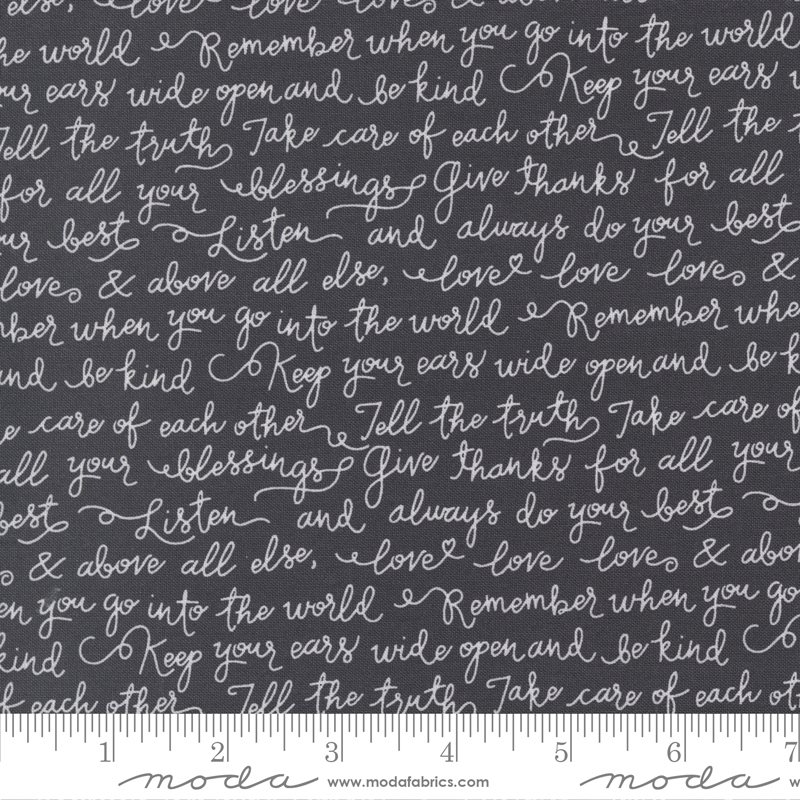 else, love love loves & above all
he world Remember when you go into the world
ur ears wide open and be kind Keep your ears w
Tell the truth Take care of each other Tell the t
for all your blessings Give thanks for all
ur best Listen and always do your best
love & above all else, love love love &
mber when you go into the world Remember whe
and be kind Keep your ears wide open and be k
e care of each other Tell the truth Take care of
all your blessings Give thanks for all your
best Listen and always do your best
& above all else, love love love & abov
en you go into the world Remember when you go
kind Keep your ears wide open and be kind
f each other Tell the truth Take care of each ot
1 2 3 4 5 6 7
moda www.modafabrics.com moda w